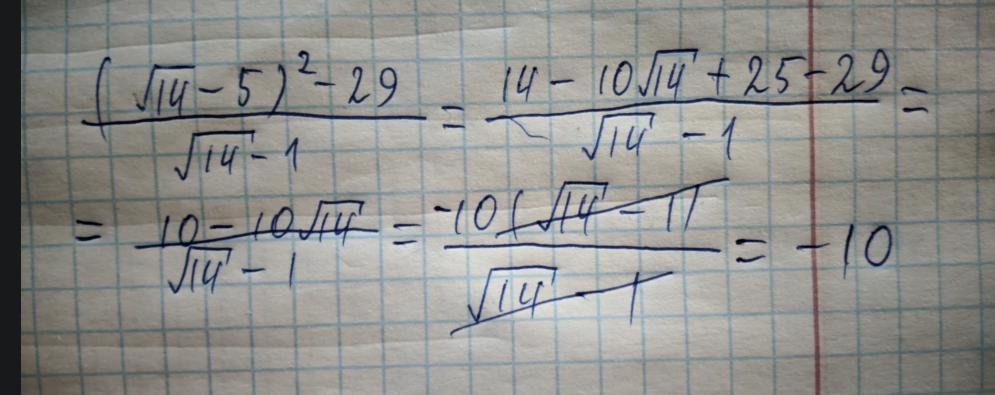 ((√14 - 5)² - 29)/(√14 - 1) = (14 - 10√14 + 25 - 29)/(√14 - 1) =
= (10 - 10√14)/(√14 - 1) = (-10(√14 - 1))/(√14 - 1) = -10